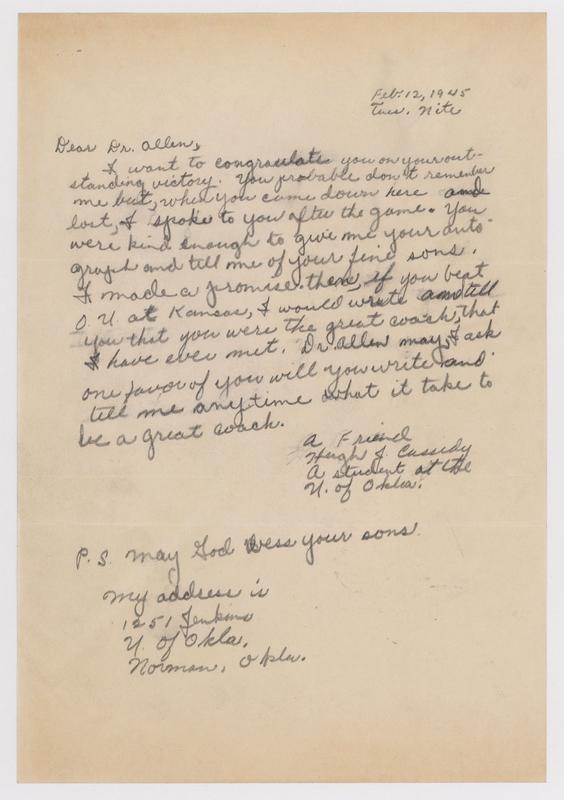 Feb. 12, 1945
Tues. Nite
Dear Dr. Allen,
I want to congraulate you on your out-
standing victory. You probable don't remember
me but, when you came down here and
lost, I spoke to you after the game. You
were kind enough to give me your auto-
graph and tell me of your fine sons.
I made a promise then, if you beat
O.U. at Kansas, I would write and tell
you that you were the great coach, that
I have ever met. Dr. Allen may, I ask
one favor of you will you write and
tell me anytime what it take to
be a great coach.
A Friend
Hugh J. Cassidy
A student at the
U. of Okla.
P.S. May God bless your sons.
My address is
1251 Jenkins
U. of Okla.
Norman, Okla.